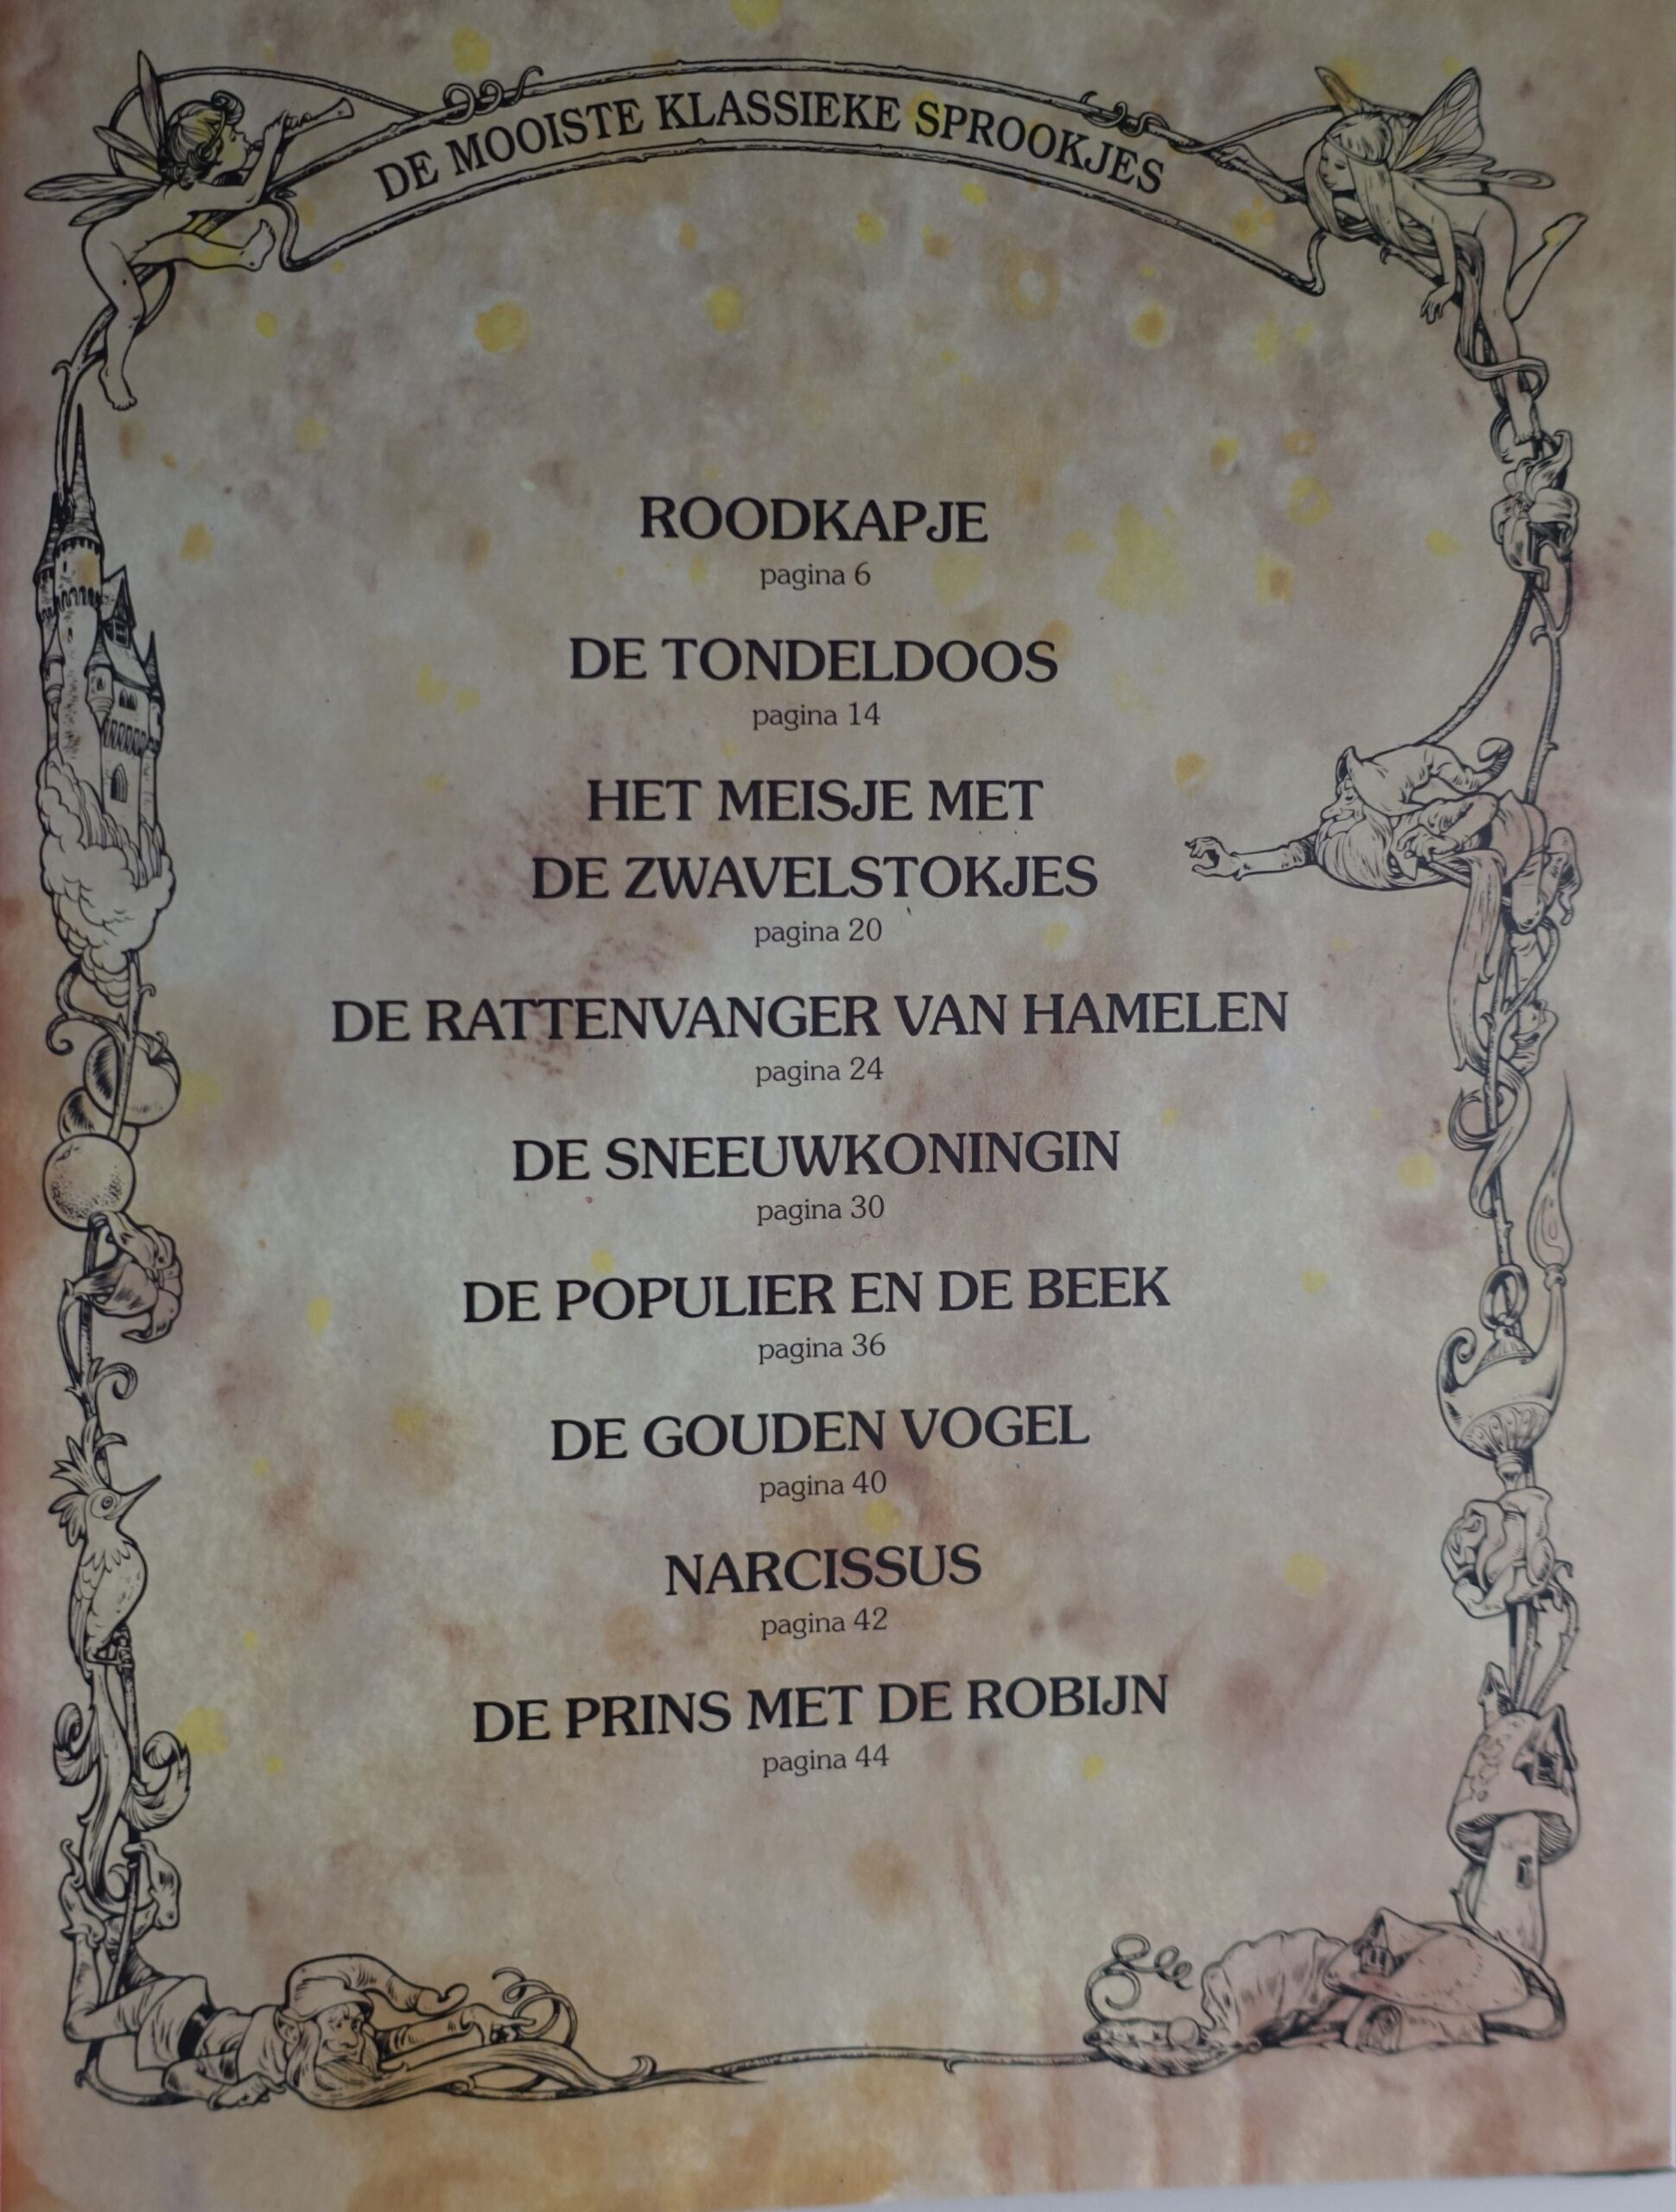 DE MOOISTE KLASSIEKE SPROOKJES
ROODKAPJE
pagina 6
DE TONDELDOOS
pagina 14
HET MEISJE MET
DE ZWAVELSTOKJES
pagina 20
DE RATTENVANGER VAN HAMELEN
pagina 24
DE SNEEUWKONINGIN
pagina 30
DE POPULIER EN DE BEEK
pagina 36
DE GOUDEN VOGEL
pagina 40
NARCISSUS
pagina 42
DE PRINS MET DE ROBIJN
pagina 44